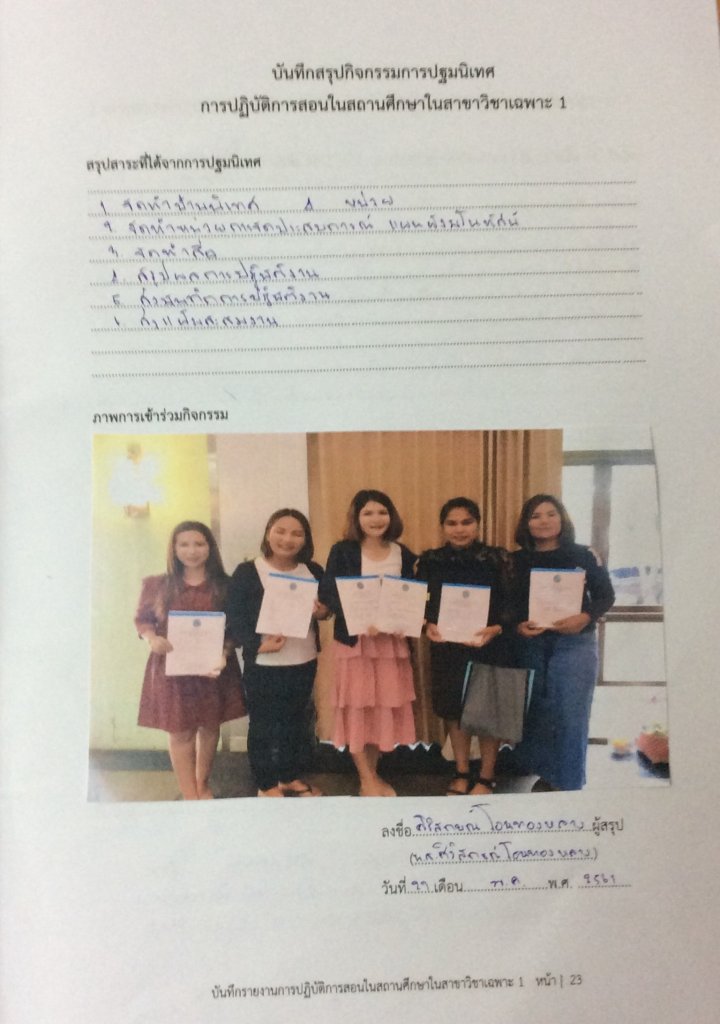 บันทึกสรุปกิจกรรมการปฐมนิเทศ
การปฏิบัติการสอนในสถานศึกษาในสาขาวิชาเฉพาะ 1
สรุปสาระที่ได้จากการปฐมนิเทศ
1. จัดทำป้ายนิเทศ 1 หน่วย
2. จัดทำหน่วยการจัดประสบการณ์ แผนผังมโนทัศน์
3. จัดทำสื่อ
4. สรุปผลการปฏิบัติงาน
5. ส่งบันทึกการปฏิบัติงาน
ส่งแฟ้มสะสมงาน
ภาพการเข้าร่วมกิจกรรม
ลงชื่อ ศิริลักษณ์ ผู้สรุป
(น.ส.ศิริลักษณ์)
วันที่ เดือน พ.ค. พ.ศ. 2561
บันทึกรายงานการปฏิบัติการสอนในสถานศึกษาในสาขาวิชาเฉพาะ 1 หน้า | 23